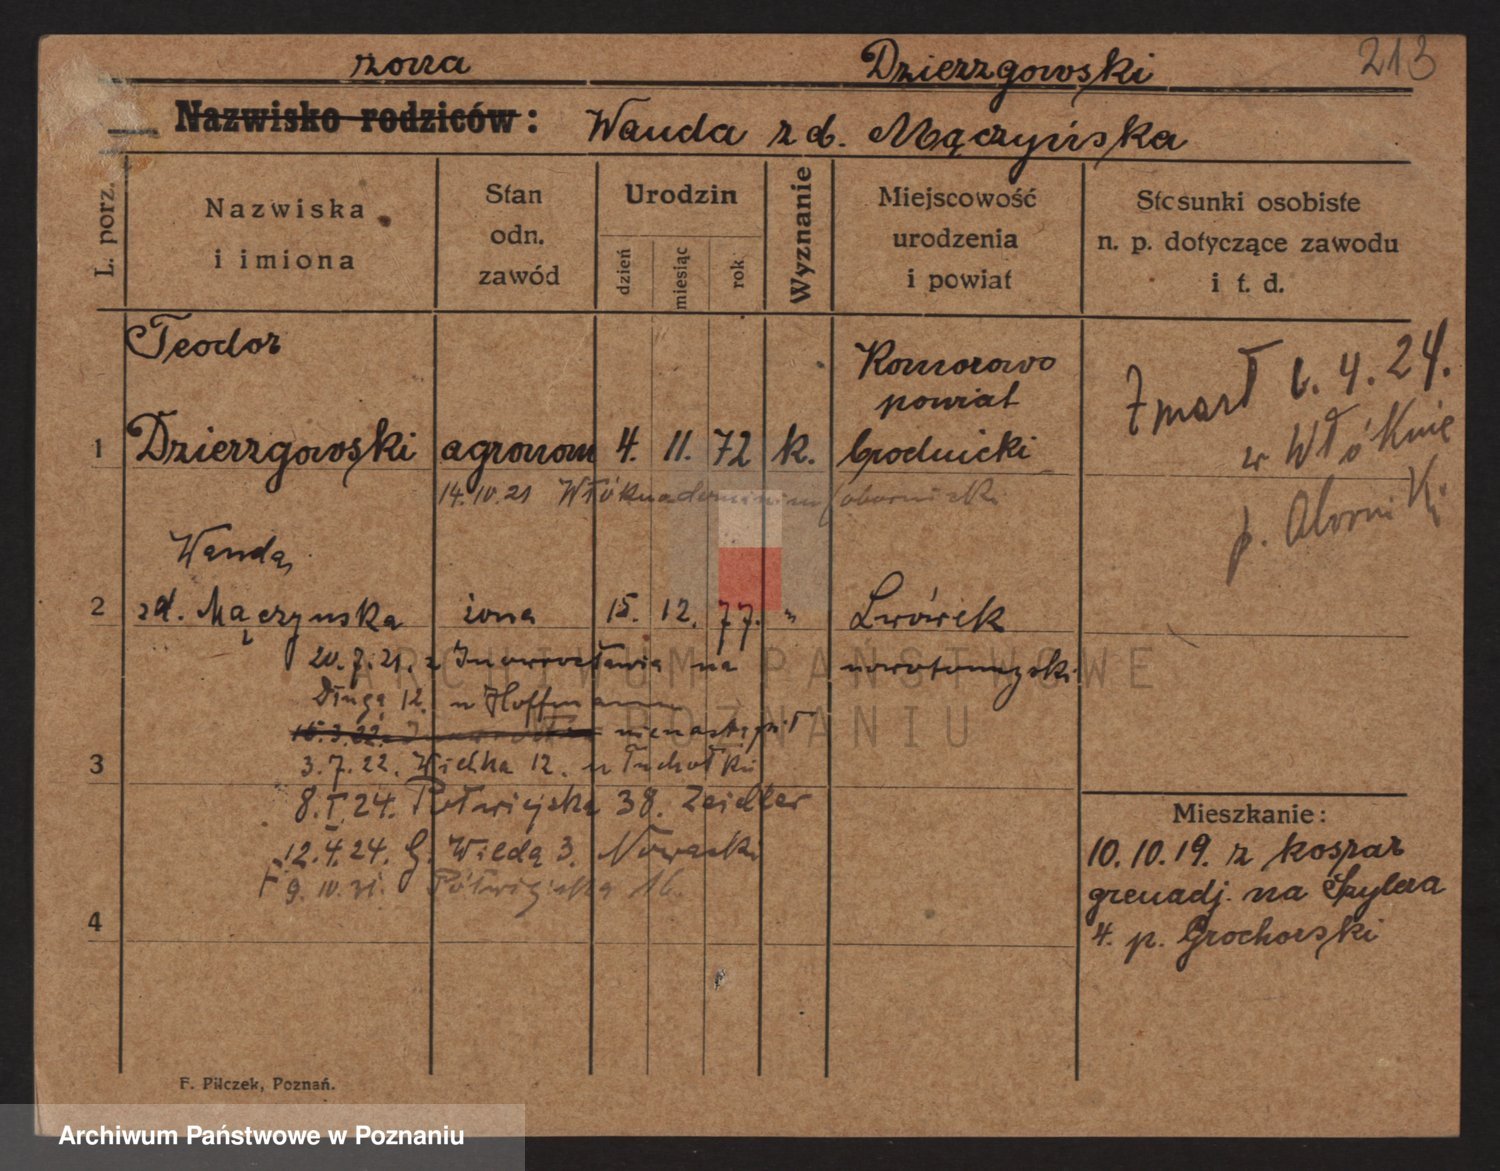 żona Dzierzgowski 213
Nazwisko rodziców: Wanda z d. Mączyńska
L. porz.
Nazwiska
i imiona
Stan
odn.
zawód
Urodzin
dzień
miesiąc
rok
Wyznanie
Miejscowość
urodzenia
i powiat
Stosunki osobiste
n. p. dotyczące zawodu
i t. d.
Teodor
Komorowo
powiat
1 Dzierzgowski agronom 4. 11. 72 k. Grodnicki
Zmarł 6. 4. 24.
w Włóknie
p. Oborniki
14.10.21 Włókna obornicki
Wanda
2 zd. Mączynska żona 15. 12. 77. " Lwówek
20.7.21. z Inowrocławia na nowotomyski
Długą 12. u Hoffmanna
15.3.22. nienastąpił
3 3.7.22. Wielka 12. u Tuchołki
8.I.24. Półwiejska 38. Zeidler
12.4.24. G. Wildą 3. Nowacki
F 9.IV.31. Półwiejska 16.
4
Mieszkanie:
10.10.19. z koszar
grenadj. na Szylera
4. p. Grochorski
F. Pilczek, Poznań.
ARCHIWUM PAŃSTWOWE
W POZNANIU
Archiwum Państwowe w Poznaniu